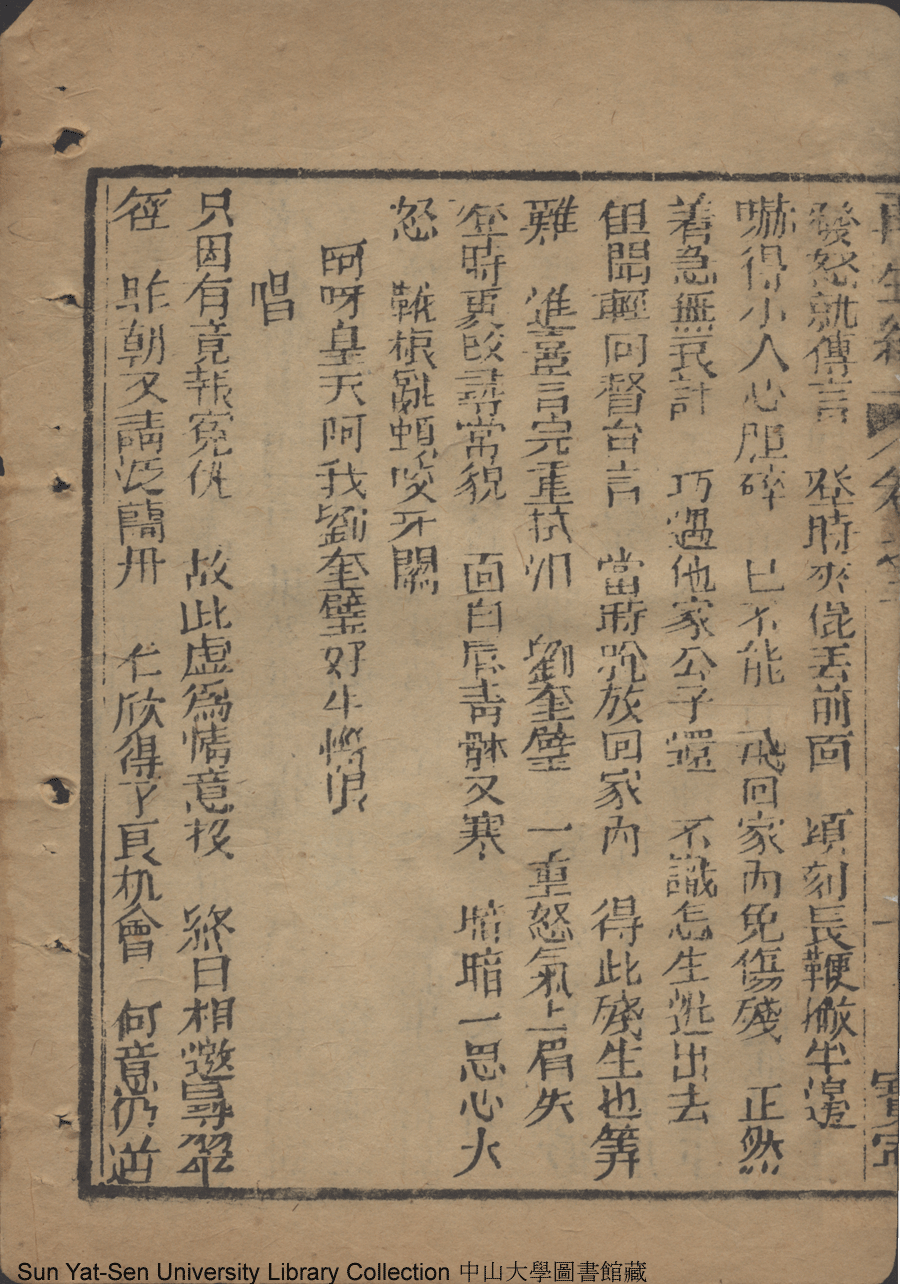 再生緣 卷之
寶寧
發怒就傳言 登時夾棍丟前面 頃刻長鞭撇半邊
嚇得小人心胆碎 巴不能 飛回家內免傷殘 正然
着急無良計 巧遇他家公子還 不識怎生逃出去
但聞輕回督台言 當時說放回家內 得此殘生也筭
難 進喜言完重拭泪 劉奎璧 一重怒氣上眉尖
登時更改尋常貌 面白唇青躰又寒 暗暗一思心大
怒 靴根亂頓咬牙關
阿呀皇天阿我劉奎璧好生懊恨
唱
只因有意報冤仇 故此虛爲情意投 終日相邀尋翠
徑 昨朝又請泛蘭舟 才欣得了良机會 何意仍逃
Sun Yat-Sen University Library Collection 中山大學圖書館藏